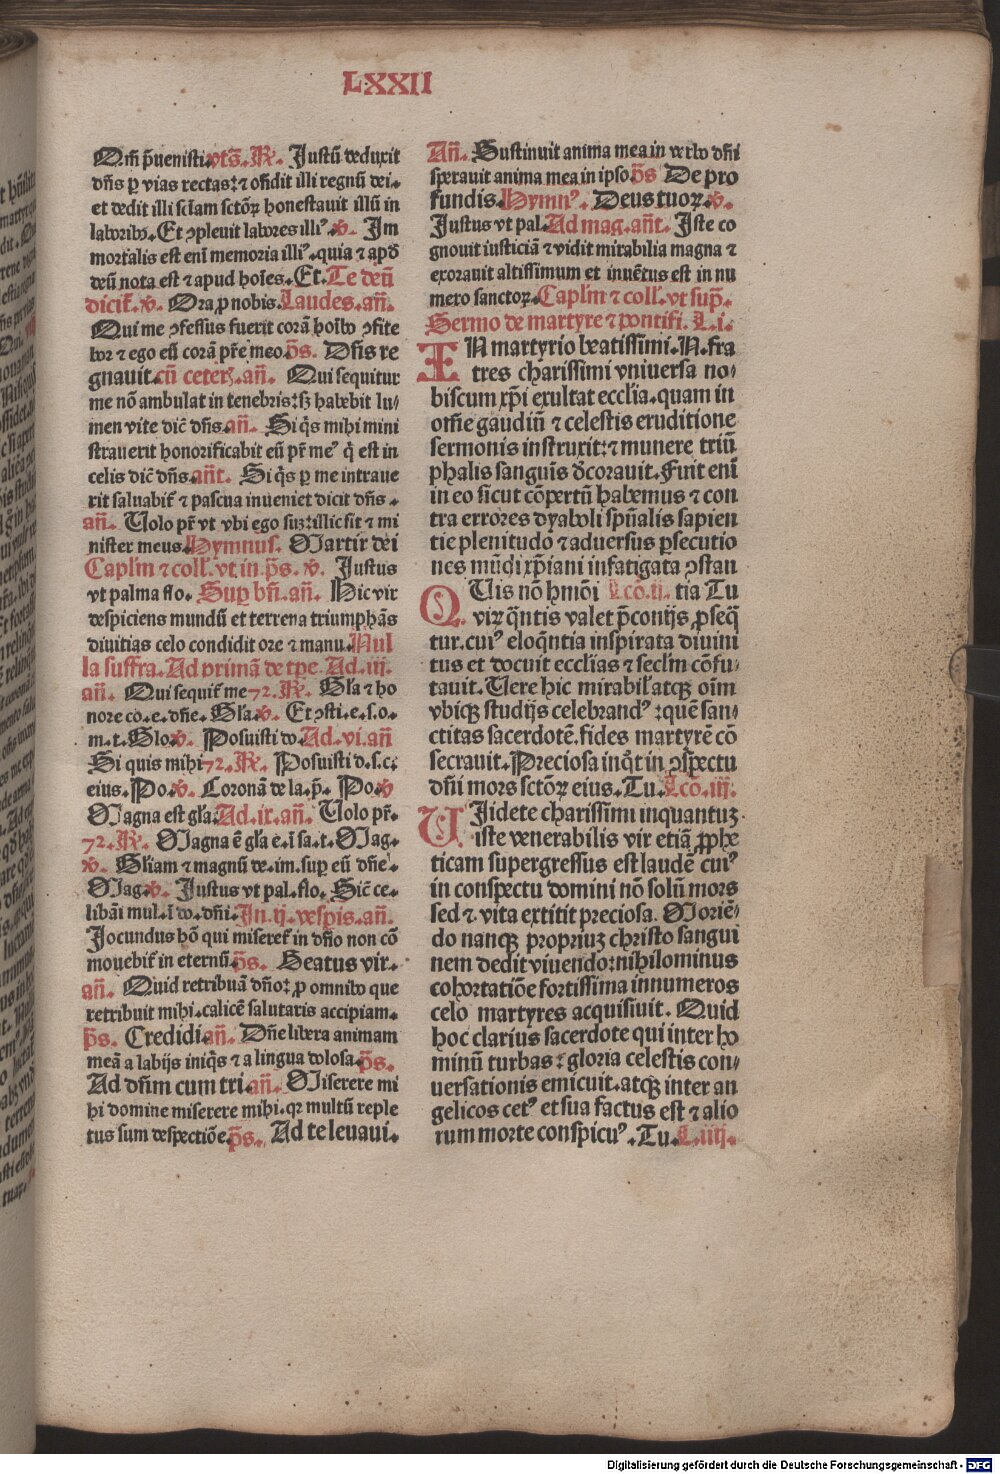 LXXII
Qm̄ p̄uenisti. vts̄. ℟. Justū deduxit
dn̄s ꝑ vias rectas: ⁊ oñdit illi regnū dei.
et dedit illi sc̄iam sctōꝝ honestauit illū in
laboribꝰ. Et ↄpleuit labores illiꝰ. ℣. Im
mortalis est enī memoria illiꝰ. quia ⁊ apd̄
deū nota est ⁊ apud hoīes. Et. Te deū
dicit̄. ℣. Ora ꝓ nobis. Laudes. an̄.
Qui me ↄfessus fuerit corā hoībꝰ ↄfite
bor ⁊ ego eū corā pr̄e meo. p̄s. Dn̄s re
gnauit. cū ceter̄. an̄. Qui sequitur
me nō ambulat in tenebris: sꝫ habebit lu/
men vite dic̄ dn̄s. an̄. Si q̄s mihi mini
strauerit honorificabit eū pr̄ meꝰ q̄ est in
celis dic̄ dn̄s. an̄t. Si q̄s ꝑ me intraue
rit saluabit̄ ⁊ pascua inueniet dicit dn̄s.
an̄. Uolo pr̄ vt vbi ego suꝫ: illic sit ⁊ mi
nister meus. Hymnus. Martir dei
Caplm̄ ⁊ coll̄. vt in. p̄s. ℣. Justus
vt palma flo. Suꝑ bn̄. an̄. Hic vir
despiciens mundū et terrena triumphās
diuitias celo condidit ore ⁊ manu. Nul
la suffra. Ad primā de tp̄e. Ad. iii.
an̄. Qui sequit̄ me 72. ℟. Gl̄a ⁊ ho
nore co. e. dn̄e. Gl̄a. ℣. Et ↄsti. e. s. o.
m. t. Glo. ℣. Posuisti do. Ad. vi. an̄
Si quis mihi 72. ℟. Posuisti d. s. c.
eius. Po. ℣. Coronā de la. p̄. Po. ℣
Magna est gl̄a. Ad. ix. an̄. Uolo pr̄.
72. ℟. Magna ē gl̄a e. ī sa. t. Mag.
℣. Gl̄iam ⁊ magnū de. im. suꝑ eū dn̄e.
Mag. ℣. Justus vt pal. flo. Sic̄ ce.
libāi mul. ī do. dn̄i. In. ij. vesꝑis. an̄.
Jocundus hō qui miseret̄ in dn̄o non cō
mouebit̄ in eternū. p̄s. Beatus vir.
an̄. Quid retribuā dn̄o: ꝓ omnibꝰ que
retribuit mihi. calicē salutaris accipiam.
p̄s. Credidi. an̄. Dn̄e libera animam
meā a labijs iniq̄s ⁊ a lingua dolosa. p̄s.
Ad dn̄m cum tri. an̄. Miserere mi
hi domine miserere mihi. qꝛ multū reple
tus sum despectiōe. p̄s. Ad te leuaui.
An̄. Sustinuit anima mea in verbo dn̄i
sperauit anima mea in ipso. p̄s De pro
fundis. Hymnꝰ. Deus tuoꝝ. ℣.
Justus vt pal. Ad mag. an̄t. Iste co
gnouit iusticiā ⁊ vidit mirabilia magna ⁊
exorauit altissimum et inuētus est in nu
mero sanctoꝝ. Caplm̄ ⁊ coll̄. vt sup̄.
Sermo de martyre ⁊ pontifi. L. i.
IN martyrio beatissimi. N. fra
tres charissimi vniuersa no/
biscum xp̄i exultat ecclīa. quam in
om̄e gaudiū ⁊ celestis eruditione
sermonis instruxit: ⁊ munere triū
phalis sanguīs d̄corauit. Fuit enī
in eo sicut cōpertū habemus ⁊ con
tra errores dyaboli spūalis sapien
tie plenitudo ⁊ aduersus ꝑsecutio
nes mūdi xp̄iani infatigata ↄstan
QUis nō hmōi Lcō. ij. tia Tu
viꝝ q̄ntis valet p̄conijs ꝓseq̄
tur. cuiꝰ eloq̄ntia inspirata diuini
tus et docuit ecclīas ⁊ seclm̄ cōfu/
tauit. Uere hic mirabil̄ atqꝫ oīm
vbiqꝫ studijs celebrandꝰ: quē san/
ctitas sacerdotē. fides martyrē cō
secrauit. Preciosa inq̇t in ↄspectu
dn̄i mors sctōꝝ eius. Tu. Lcō. iij.
UIdete charissimi inquantuꝫ
iste venerabilis vir etiā ꝓphe
ticam supergressus est laudē cuiꝰ
in conspectu domini nō solū mors
sed ⁊ vita extitit preciosa. Moriē/
do nanqꝫ propriuꝫ christo sangui
nem dedit viuendo: nihilominus
cohortatiōe fortissima innumeros
celo martyres acquisiuit. Quid
hoc clarius sacerdote qui inter ho
minū turbas: gloria celestis con/
uersationis emicuit. atqꝫ inter an
gelicos cetꝰ et sua factus est ⁊ alio
rum morte conspicuꝰ. Tu. L. iiij.
Digitalisierung gefördert durch die Deutsche Forschungsgemeinschaft - DFG